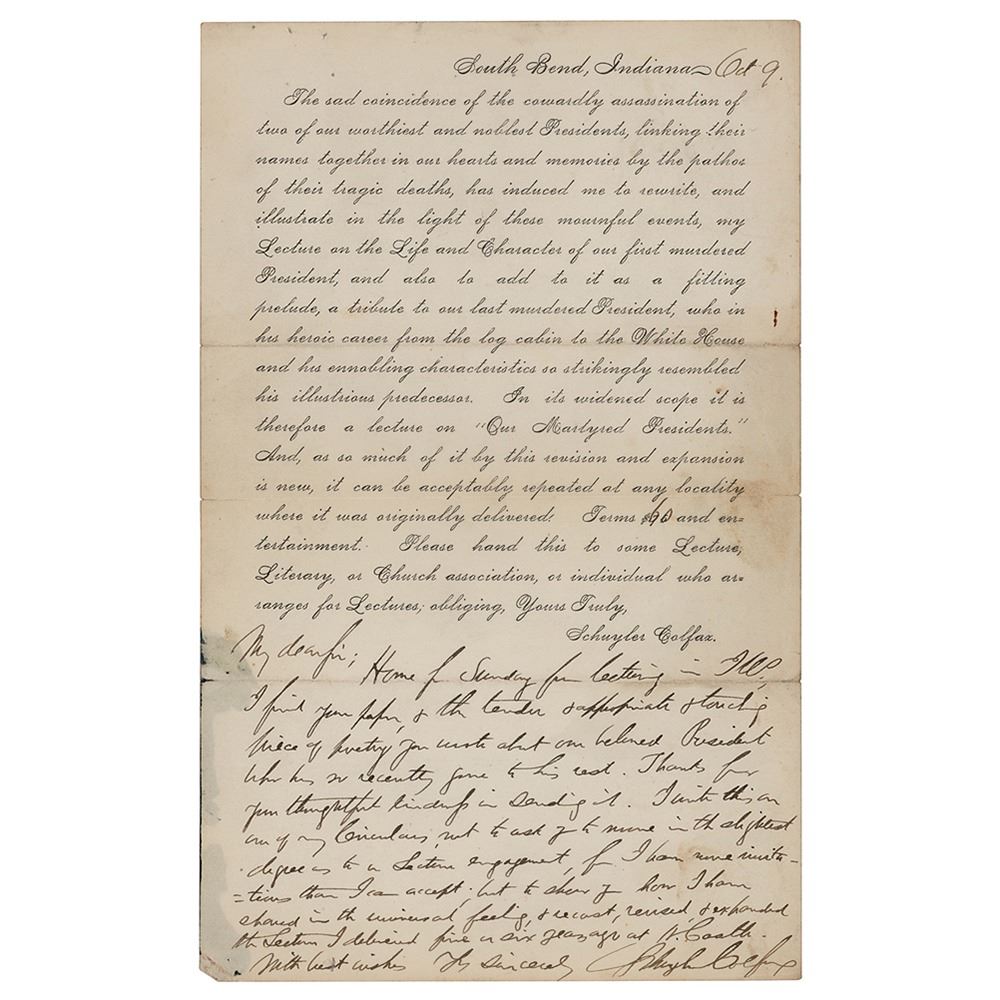 South Bend, Indiana Oct 9.
The sad coincidence of the cowardly assassination of
two of our worthiest and noblest Presidents, linking their
names together in our hearts and memories by the pathos
of their tragic deaths, has induced me to rewrite, and
illustrate in the light of these mournful events, my
Lecture on the Life and Character of our first murdered
President, and also to add to it as a fitting
prelude, a tribute to our last murdered President, who in
his heroic career from the log cabin to the White House
and his ennobling characteristics so strikingly resembled
his illustrious predecessor. In its widened scope it is
therefore a lecture on "Our Martyred Presidents."
And, as so much of it by this revision and expansion
is new, it can be acceptably repeated at any locality
where it was originally delivered. Terms and en=
tertainment. Please hand this to some Lecture,
Literary, or Church association, or individual who ar=
ranges for Lectures; obliging, Yours Truly,
Schuyler Colfax.
My dear Sir;
Home for Sunday from lecturing in Ill,
I find your paper, & the tender & appropriate & touching
piece of poetry you wrote about our beloved President
who has so recently gone to his rest. Thanks for
your thoughtful kindness in sending it. I write this on
one of my Circulars, not to ask you to move in the slightest
degree as to a Lecture engagement, for I have more invita=
=tions than I can accept; but to show you how I have
shared in the universal feeling, & recast, revised, & expanded
the Lecture I delivered five or six years ago at N. Castle.
With best wishes Yrs sincerely Schuyler Colfax